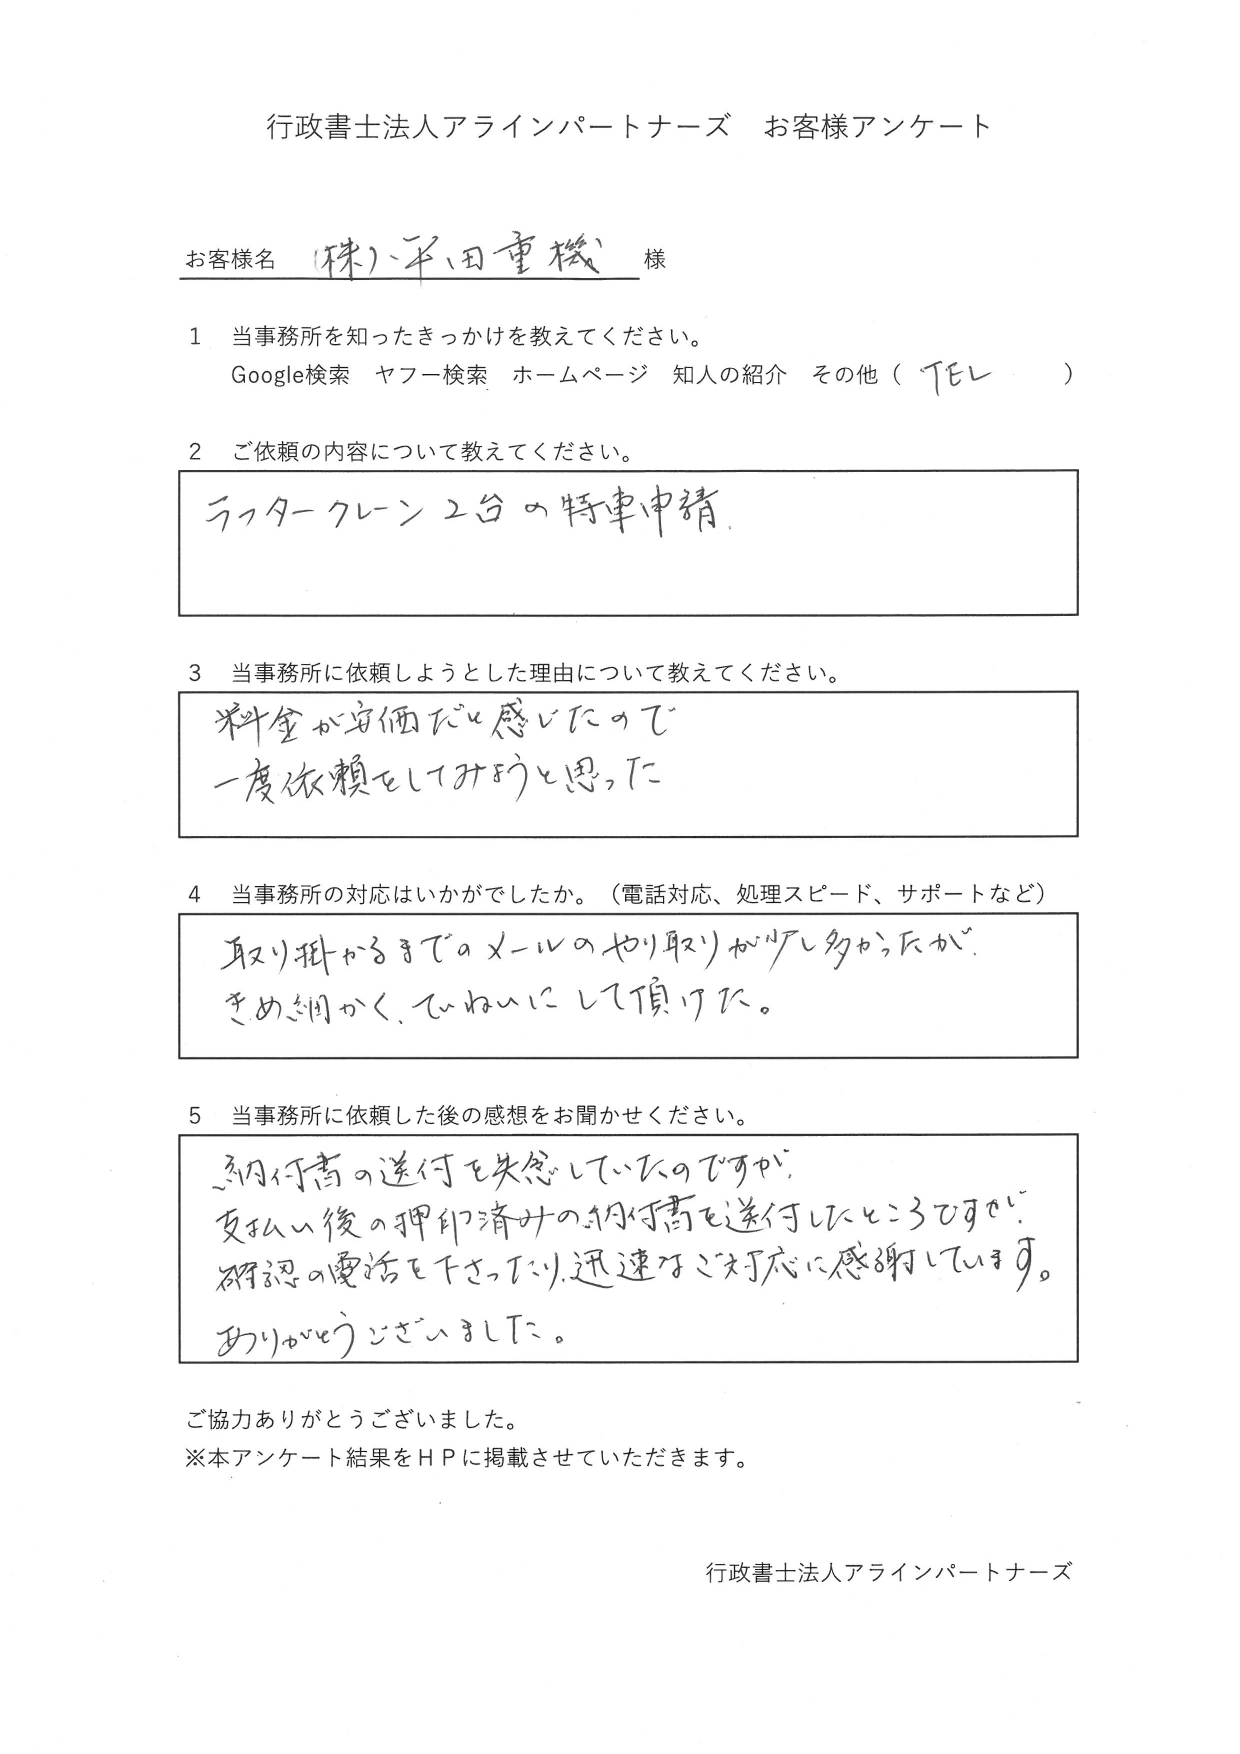 行政書士法人アラインパートナーズ　お客様アンケート
お客様名　(株)平田重機　様
1　当事務所を知ったきっかけを教えてください。
Google検索　ヤフー検索　ホームページ　知人の紹介　その他（ TEL ）
2　ご依頼の内容について教えてください。
ラフタークレーン2台の特車申請.
3　当事務所に依頼しようとした理由について教えてください。
料金が安価だと感じたので
一度依頼をしてみようと思った
4　当事務所の対応はいかがでしたか。（電話対応、処理スピード、サポートなど）
取り掛かるまでのメールのやり取りが少し多かったが、
きめ細かく、ていねいにして頂けた。
5　当事務所に依頼した後の感想をお聞かせください。
納付書の送付を失念していたのですが、
支払い後の押印済みの納付書を送付したところですが、
確認の電話を下さったり、迅速なご対応に感謝しています。
ありがとうございました。
ご協力ありがとうございました。
※本アンケート結果をＨＰに掲載させていただきます。
行政書士法人アラインパートナーズ